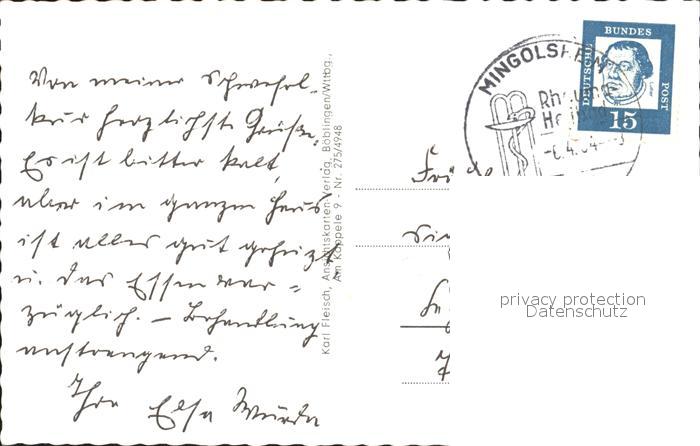 Von meiner Schwefel-
kur herzlichste Grüße.
Es ist bitter kalt,
aber im ganzen Haus
ist alles gut geheizt
u. das Essen vor=
züglich. – Behandlung
anstrengend.
Ihre Elsa
Karl Fleisch, Ansichtskarten-Verlag, Böblingen/Wttbg.,
Am Käppele 9 - Nr. 275/4948
MINGOLSHEIM
-6.4.64
DEUTSCHE
BUNDES
POST
15
privacy protection
Datenschutz